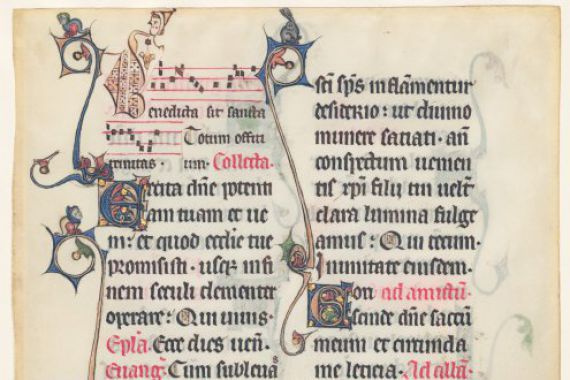 enedicta sit sancta
Totum offici
trinitas · um · Collecta.
Excita dñe potenti
am tuam et ue
ni: et quod ecclie tue
promisisti · usq; in fi
nem seculi clementer
operare: Qui uiuis·
Epła. Ecce dies ueñ.
Euang̃. Cum subleua s
sci sp̃s inflamentur
desiderio: ut diuino
munere satiati · añ
conspectum uenien
tis xp̃i filii tui uelut
clara lumina fulge
amus: Qui tecum·
In unitate eiusdem·
Con ad amictũ·
scinde dñe saccũ
meum et circumda
me leticia· Ad albã·